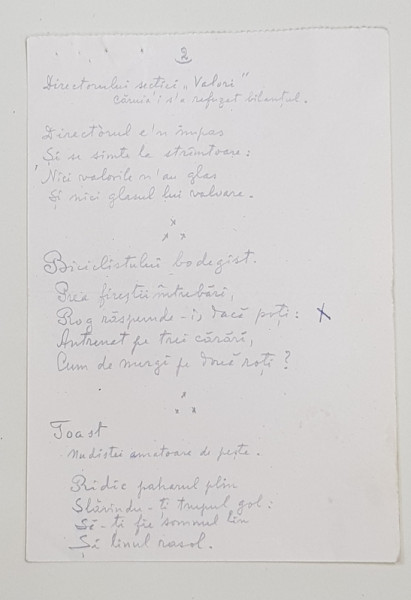 2
Directorului secției „Valori”
căruia i s'a refuzat bilanțul.
Directorul e'n impas
Și se simte la strîmtoare:
Nici valorile n'au glas
Și nici glasul lui valoare.
Biciclistului bodegist.
Prea fireștii întrebări,
Rog răspunde-i, dacă poți: x
Antrenat pe trei cărări,
Cum de mergi pe două roți?
Toast
Nudistei amatoare de pește.
Ridic paharul plin
Slăvindu-ți trupul gol:
Să-ți fie somnul lin
Și linul rasol.